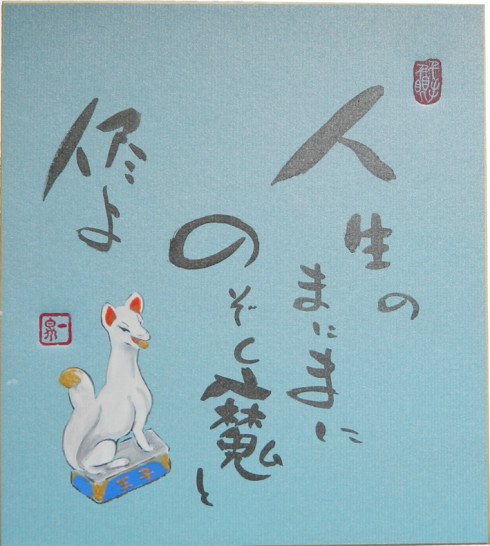 人生の
まにまに
のぞく魔と
侭よ
一泉
王子